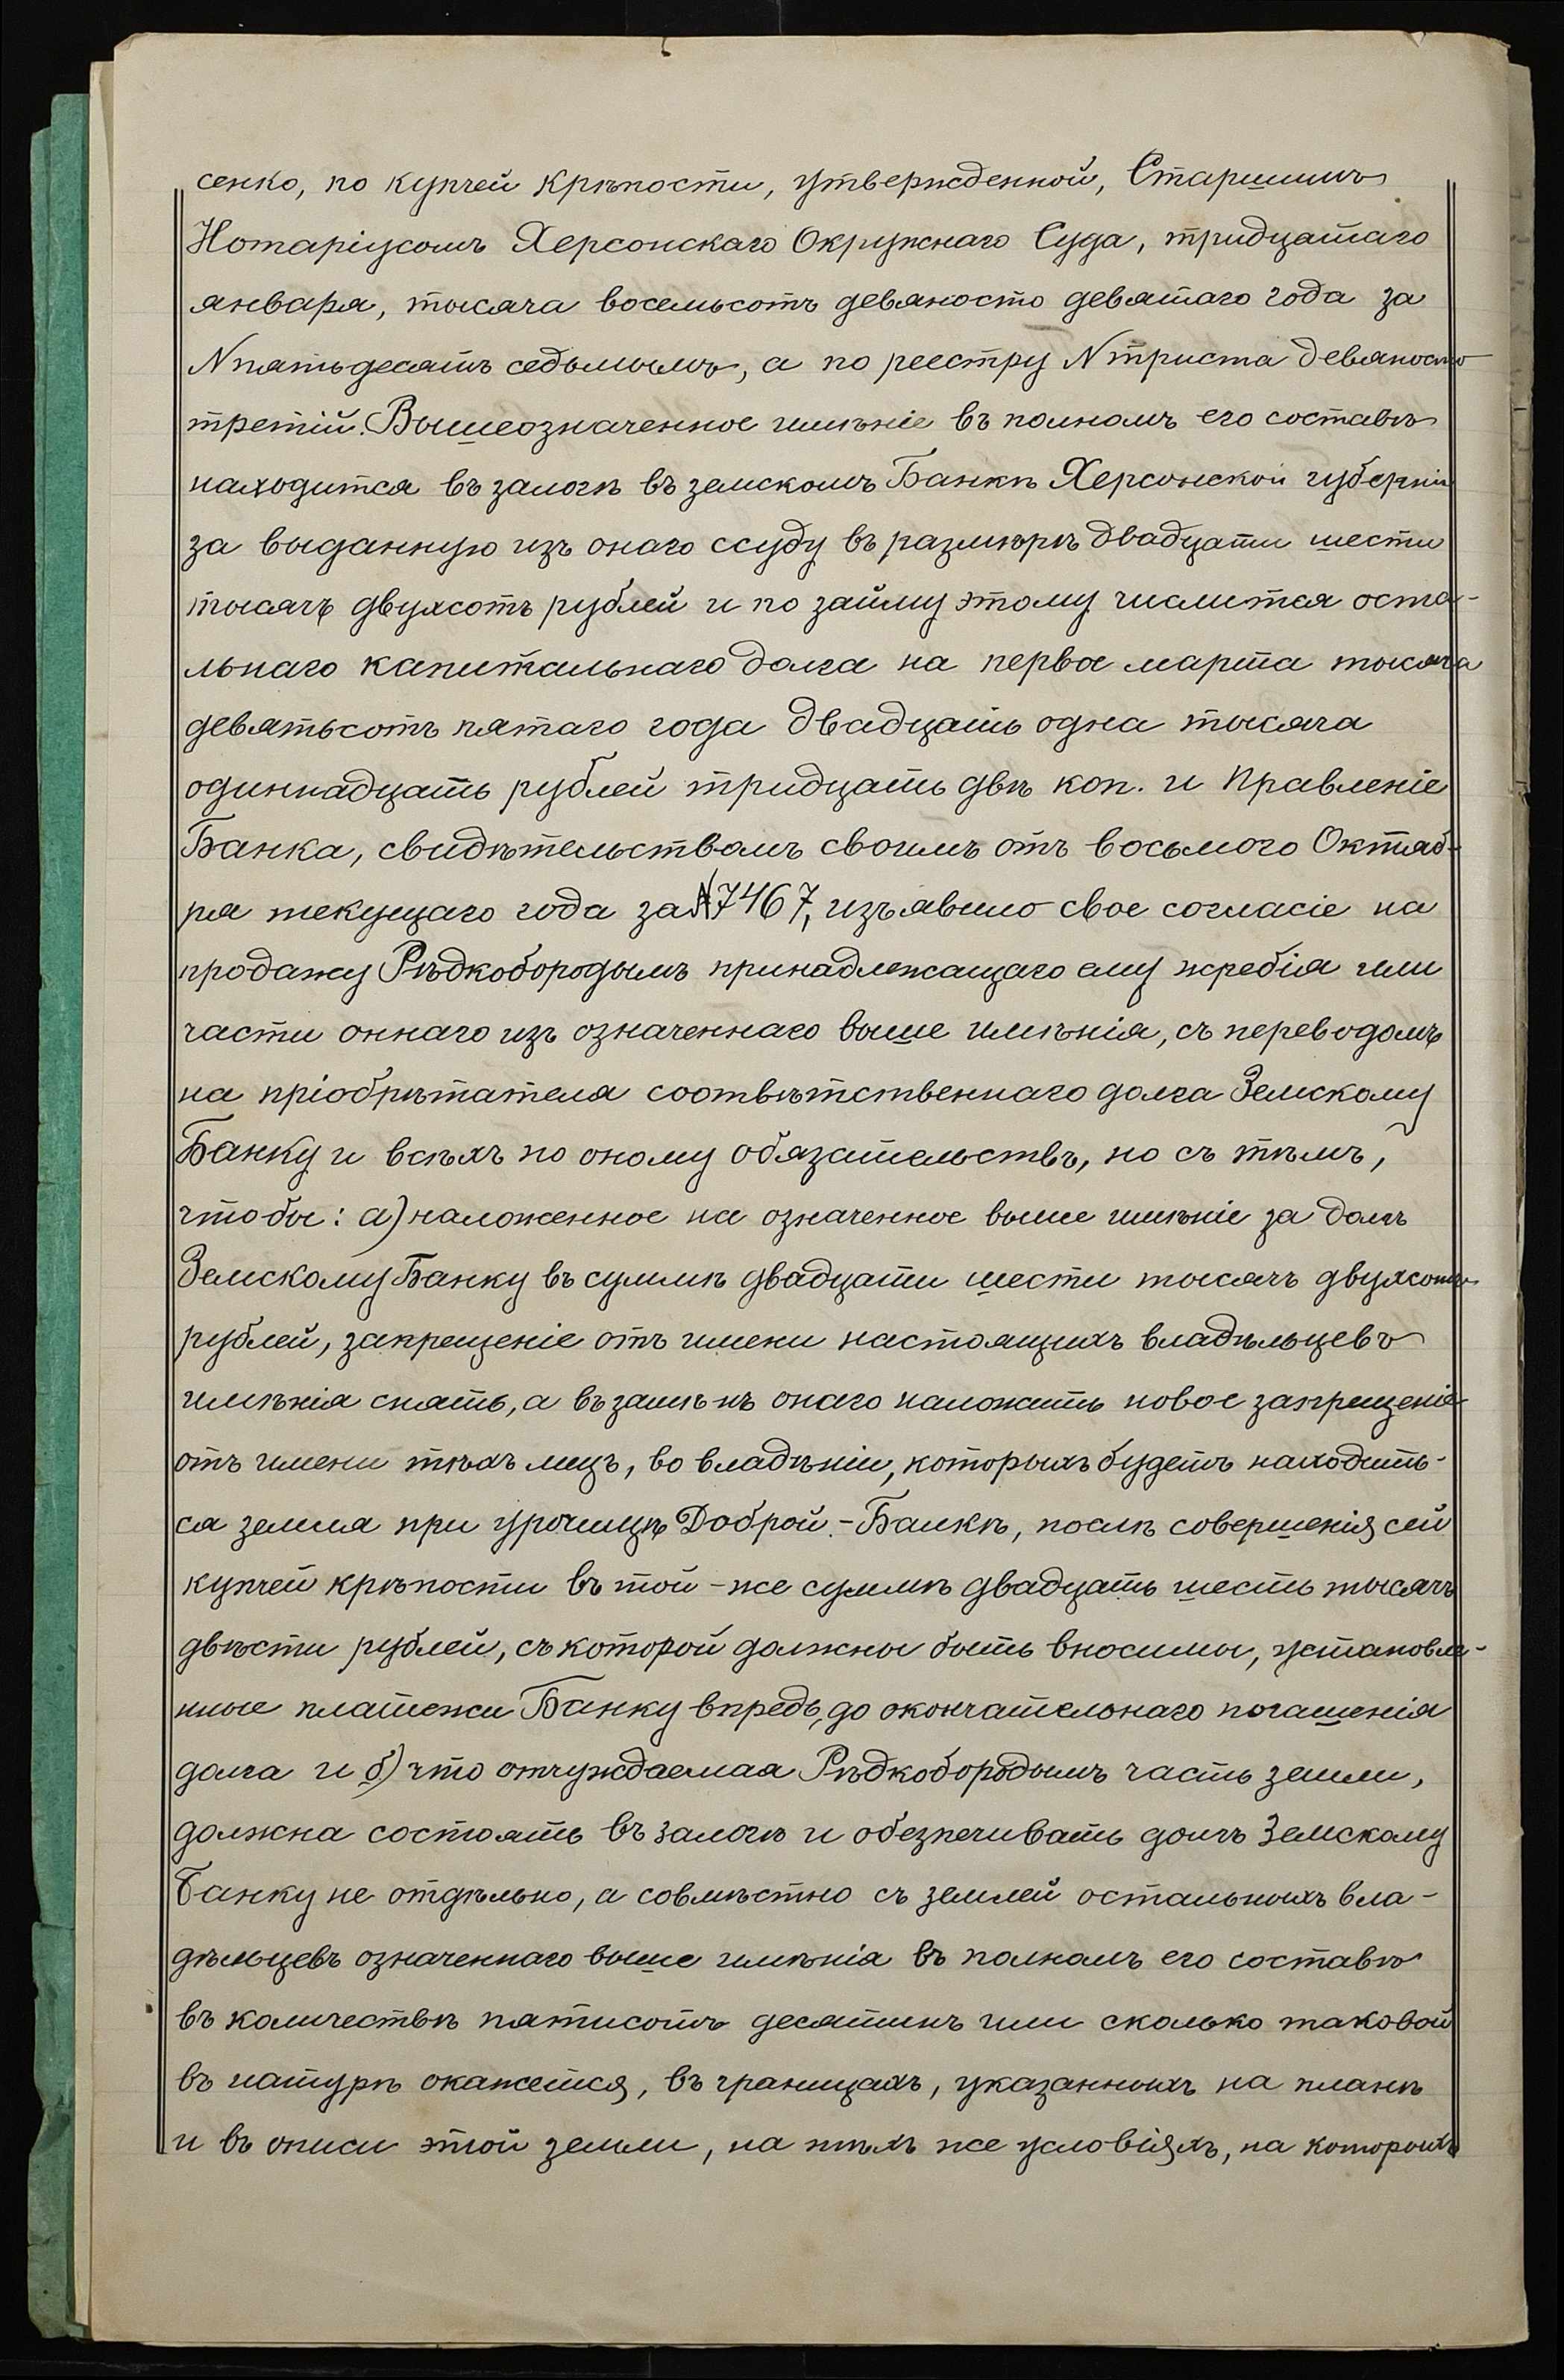 сенко, по купчей крѣпости, утвержденной, Старшимъ
Нотаріусомъ Херсонскаго Окружнаго Суда, тридцатаго
января, тысяча восемьсотъ девяносто девятаго года за
N пятьдесятъ седьмымъ, а по реестру N триста девяносто
третій. Вышеозначенное имѣніе въ полномъ его составѣ
находится въ залогѣ въ земскомъ Банкѣ Херсонской губерніи
за выданную изъ онаго ссуду въ размѣрѣ двадцати шести
тысячъ двухсотъ рублей и по займу этому числится оста-
льнаго капитальнаго долга на первое марта тысяча
девятьсотъ пятаго года двадцать одна тысяча
одиннадцать рублей тридцать двѣ коп. и Правленіе
Банка, свидѣтельствомъ своимъ отъ восьмого Октяб-
ря текущаго года за N 7467, изъявило свое согласіе на
продажу Рѣдкобородымъ принадлежащаго ему жребія или
части оннаго изъ означеннаго выше имѣнія, съ переводомъ
на пріобрѣтателя соотвѣтственнаго долга Земскому
Банку и всѣхъ по оному обязательствъ, но съ тѣмъ,
чтобы: а) наложенное на означенное выше имѣніе за долгъ
Земскому Банку въ суммѣ двадцати шести тысячъ двухсотъ
рублей, запрещеніе отъ имени настоящихъ владѣльцевъ
имѣнія снять, а въ замѣнъ онаго наложить новое запрещеніе
отъ имени тѣхъ лицъ, во владѣніи, которыхъ будетъ находить-
ся земля при урочищѣ Доброй-Балкѣ, послѣ совершенія сей
купчей крѣпости въ той-же суммѣ двадцать шесть тысячъ
двѣсти рублей, съ которой должны быть вносимы, установле-
нные платежи Банку впредь, до окончательнаго погашенія
долга и б) что отчуждаемая Рѣдкобородымъ часть земли,
должна состоять въ залогѣ и обезпечивать долгъ Земскому
Банку не отдѣльно, а совмѣстно съ землей остальныхъ вла-
дѣльцевъ означеннаго выше имѣнія въ полномъ его составѣ
въ количествѣ пятисотъ десятинъ или сколько таковой
въ натурѣ окажется, въ границахъ, указанныхъ на планѣ
и въ описи этой земли, на тѣхъ же условіяхъ, на которыхъ